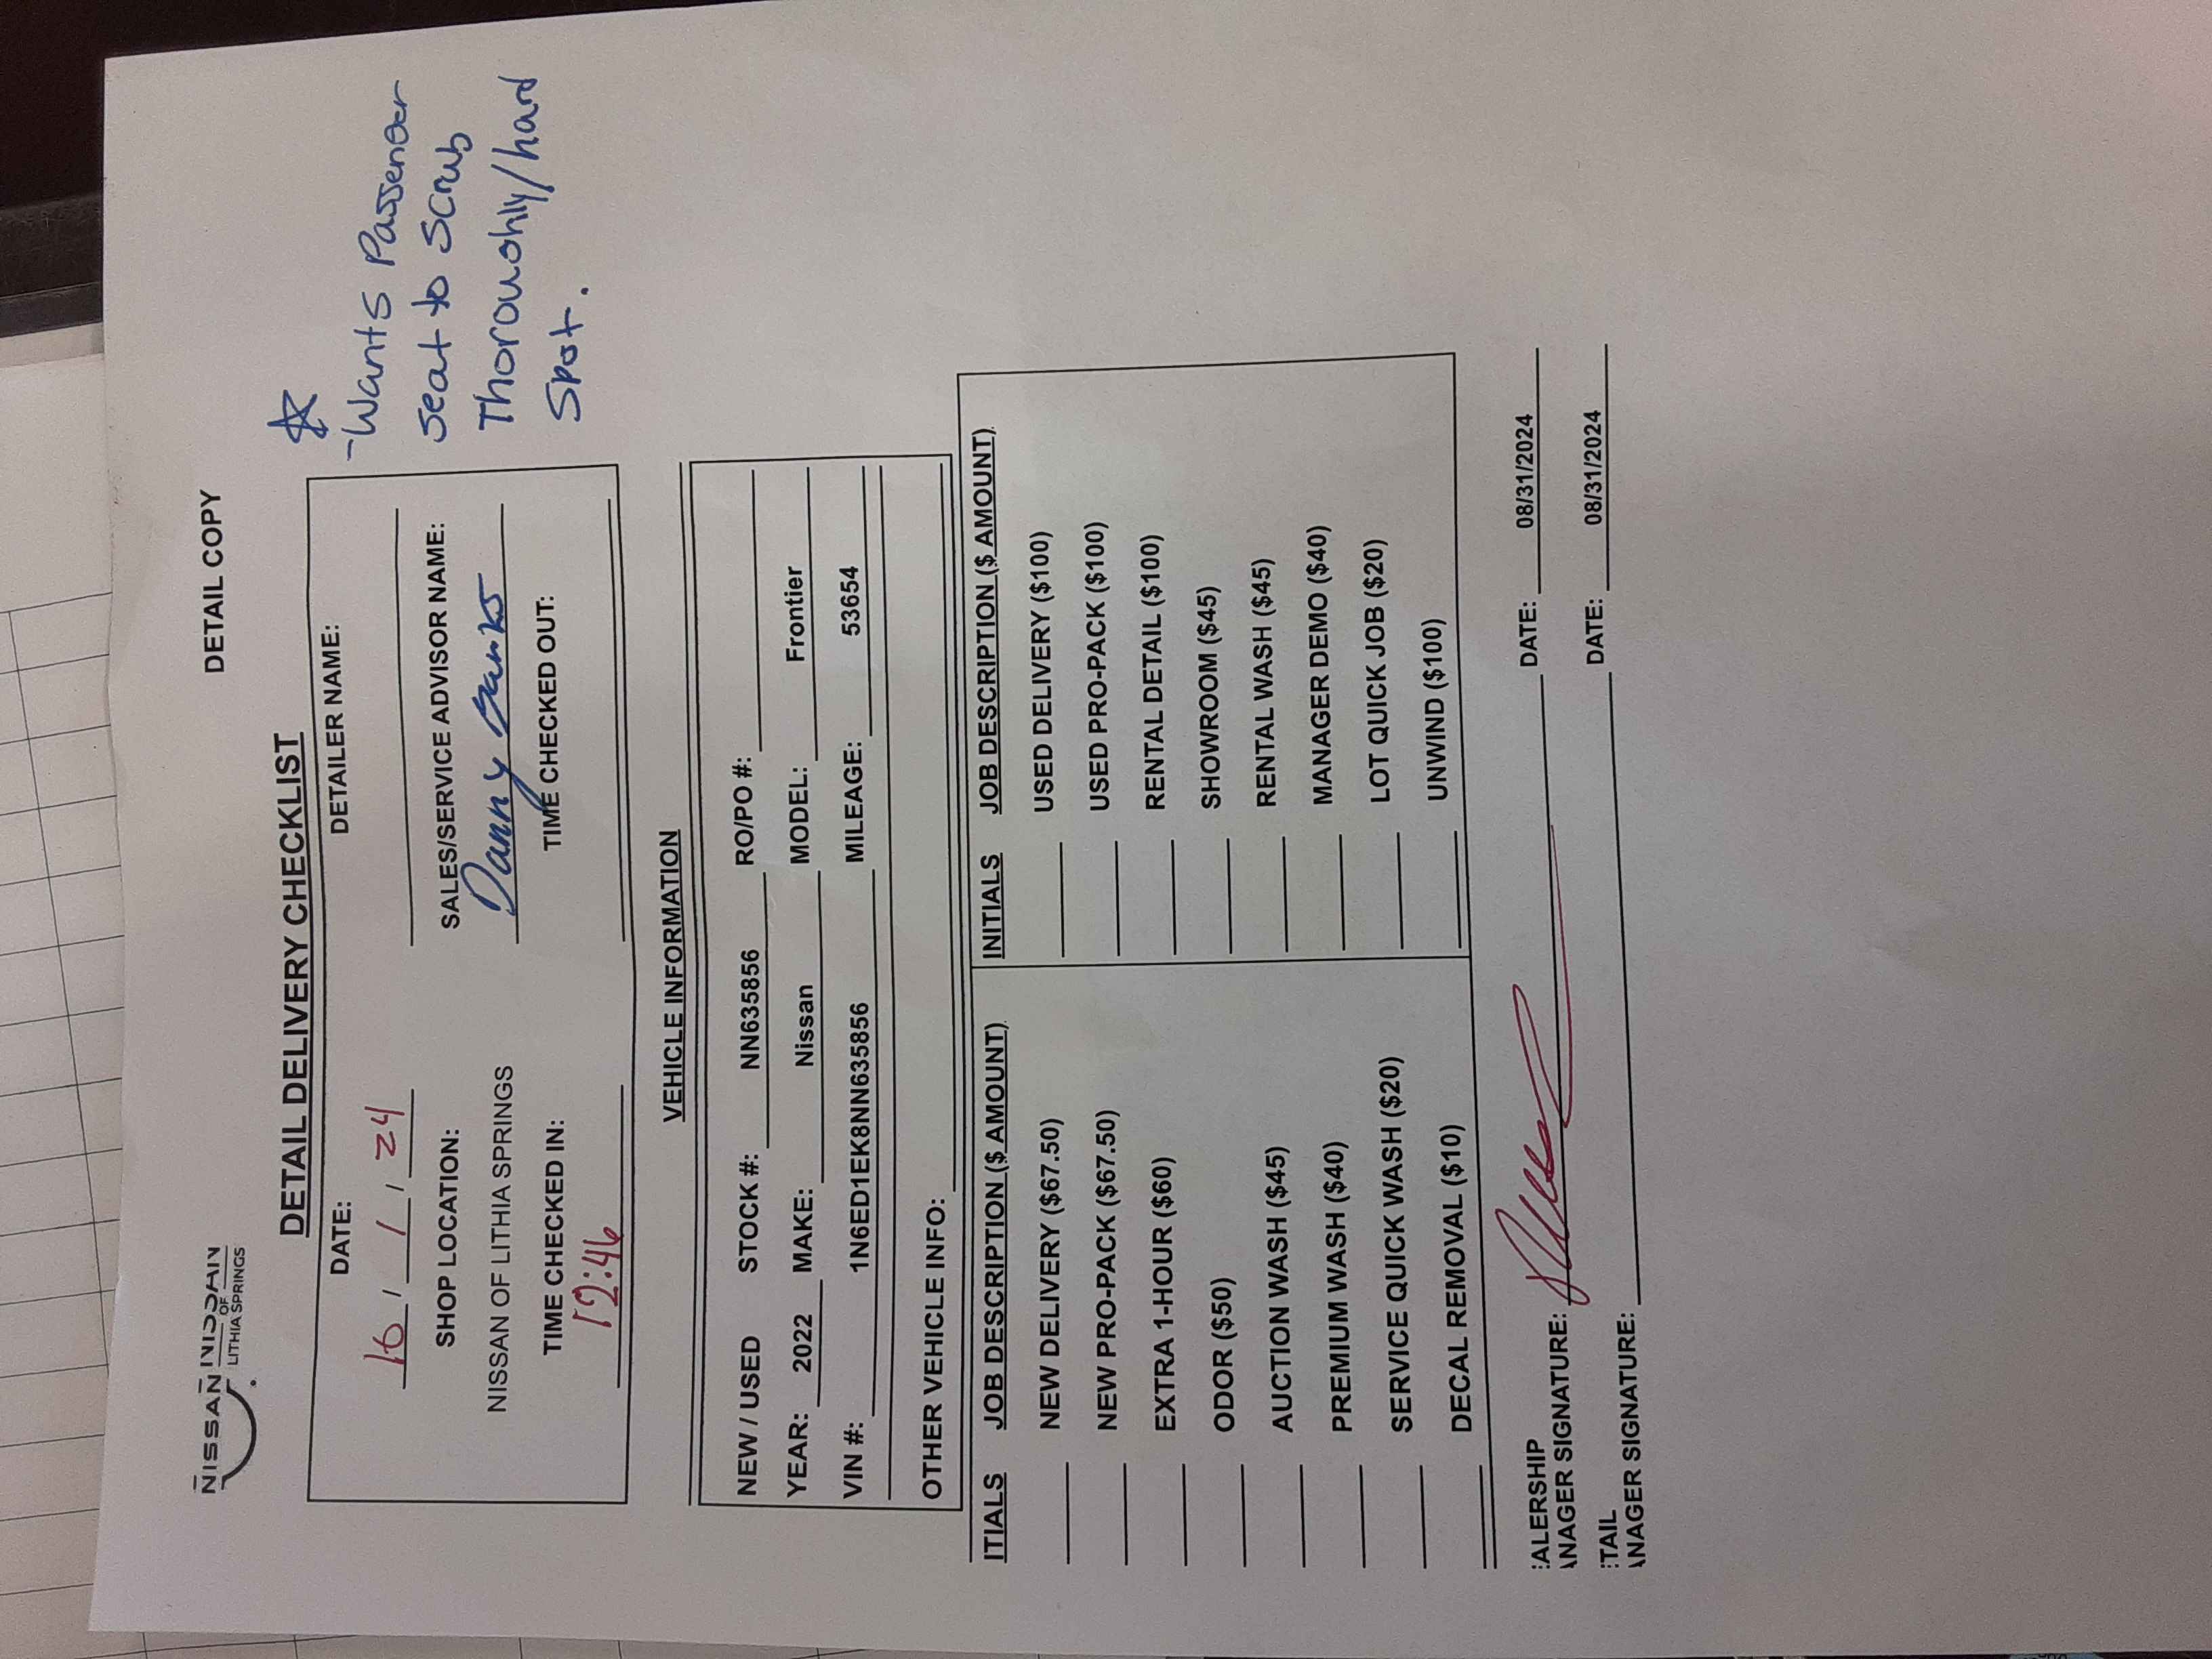 NISSAN NISSAN
OF
LITHIA SPRINGS
DETAIL COPY
DETAIL DELIVERY CHECKLIST
DATE: DETAILER NAME:
10 / 1 / 24
SHOP LOCATION: SALES/SERVICE ADVISOR NAME:
NISSAN OF LITHIA SPRINGS Danny Banks
TIME CHECKED IN: TIME CHECKED OUT:
12:46
-Wants Passenger
seat to scrub
Thoroughly/hard
Spot.
VEHICLE INFORMATION
NEW / USED STOCK #: NN635856 RO/PO #:
YEAR: 2022 MAKE: Nissan MODEL: Frontier
VIN #: 1N6ED1EK8NN635856 MILEAGE: 53654
OTHER VEHICLE INFO:
ITIALS JOB DESCRIPTION ($ AMOUNT) INITIALS JOB DESCRIPTION ($ AMOUNT)
NEW DELIVERY ($67.50) USED DELIVERY ($100)
NEW PRO-PACK ($67.50) USED PRO-PACK ($100)
EXTRA 1-HOUR ($60) RENTAL DETAIL ($100)
ODOR ($50) SHOWROOM ($45)
AUCTION WASH ($45) RENTAL WASH ($45)
PREMIUM WASH ($40) MANAGER DEMO ($40)
SERVICE QUICK WASH ($20) LOT QUICK JOB ($20)
DECAL REMOVAL ($10) UNWIND ($100)
EALERSHIP
ANAGER SIGNATURE: DATE: 08/31/2024
ETAIL
ANAGER SIGNATURE: DATE: 08/31/2024